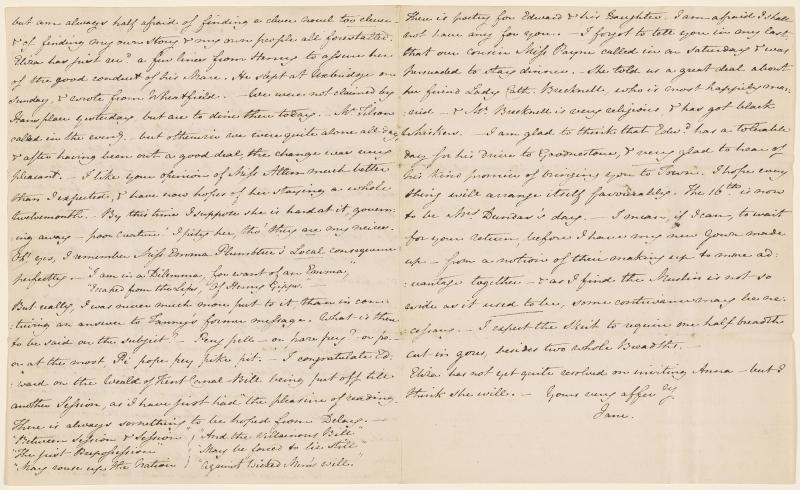 but am always half afraid of finding a clever novel too clever
& of finding my own Story & my own people all forestalled.
Eliza has just recd a few lines from Henry to assure her
of the good conduct of his Mare. He slept at Uxbridge on
Sunday, & wrote from Wheatfield. — We were not claimed by
Hans place yesterday, but are to dine there today. — Mr. Tilson
called in the eveng — but otherwise we were quite alone all day,
& after having been out a good deal, the change was very
pleasant. — I like your opinion of Miss Atten much better
than I expected, & have now hopes of her staying a whole
twelvemonth. — By this time I suppose she is hard at it, govern:
:ing away — poor creature! I pity her, tho' they are my neices.
Oh! yes, I remember Miss Emma Plumbtree's Local consequence
perfectly. —
"I am in a Dilemma, for want of an Emma,"
"Escaped from the Lips, Of Henry Gipps. —
But really, I was never much more put to it, than in con:
:tinuing an answer to Fanny's former message. What is there
to be said on the subject? — Pery pell — or pare pey? or po —
or at the most, Pi pope pey pike pit. — I congratulate Ed:
:ward on the Weald of Kent Canal-Bill being put off till
another Session, as I have just had the pleasure of reading.
There is always something to be hoped from Delay. —
"Between Session & Session" / "And the Villainous Bill"
"The first Prepossession" / "May be forced to lie Still"
"May rouse up the Nation" / "Against Wicked Men's will."
There is poetry for Edward & his Daughter. I am afraid I shall
not have any for you. — I forgot to tell you in my last,
that our cousin Miss Payne called in on Saturday & was
persuaded to stay dinner. — She told us a great deal about
her friend Lady Cath. Brecknell, who is most happily mar:
:ried — & Mr. Brecknell is very religious, & has got black
Whiskers. — I am glad to think that Edwd. has a tolerable
day for his drive to Goodnestone, & very glad to hear of
his kind promise of bringing you to Town. I hope every
thing will arrange itself favourably. The 16th. is now
to be Mrs Dundas's day. — I mean, if I can, to wait
for your return, before I have my new Gown made
up — from a notion of their making up to more ad:
:vantage together — & as I find the Muslin is not so
wide as it used to be, some contrivance may be ne:
:cessary. — I expect the Skirt to require one half breadth
cut in gores, besides two whole Breadths. —
Eliza has not yet quite resolved on inviting Anna — but I
think she will. — Yours very affecly.
Jane.